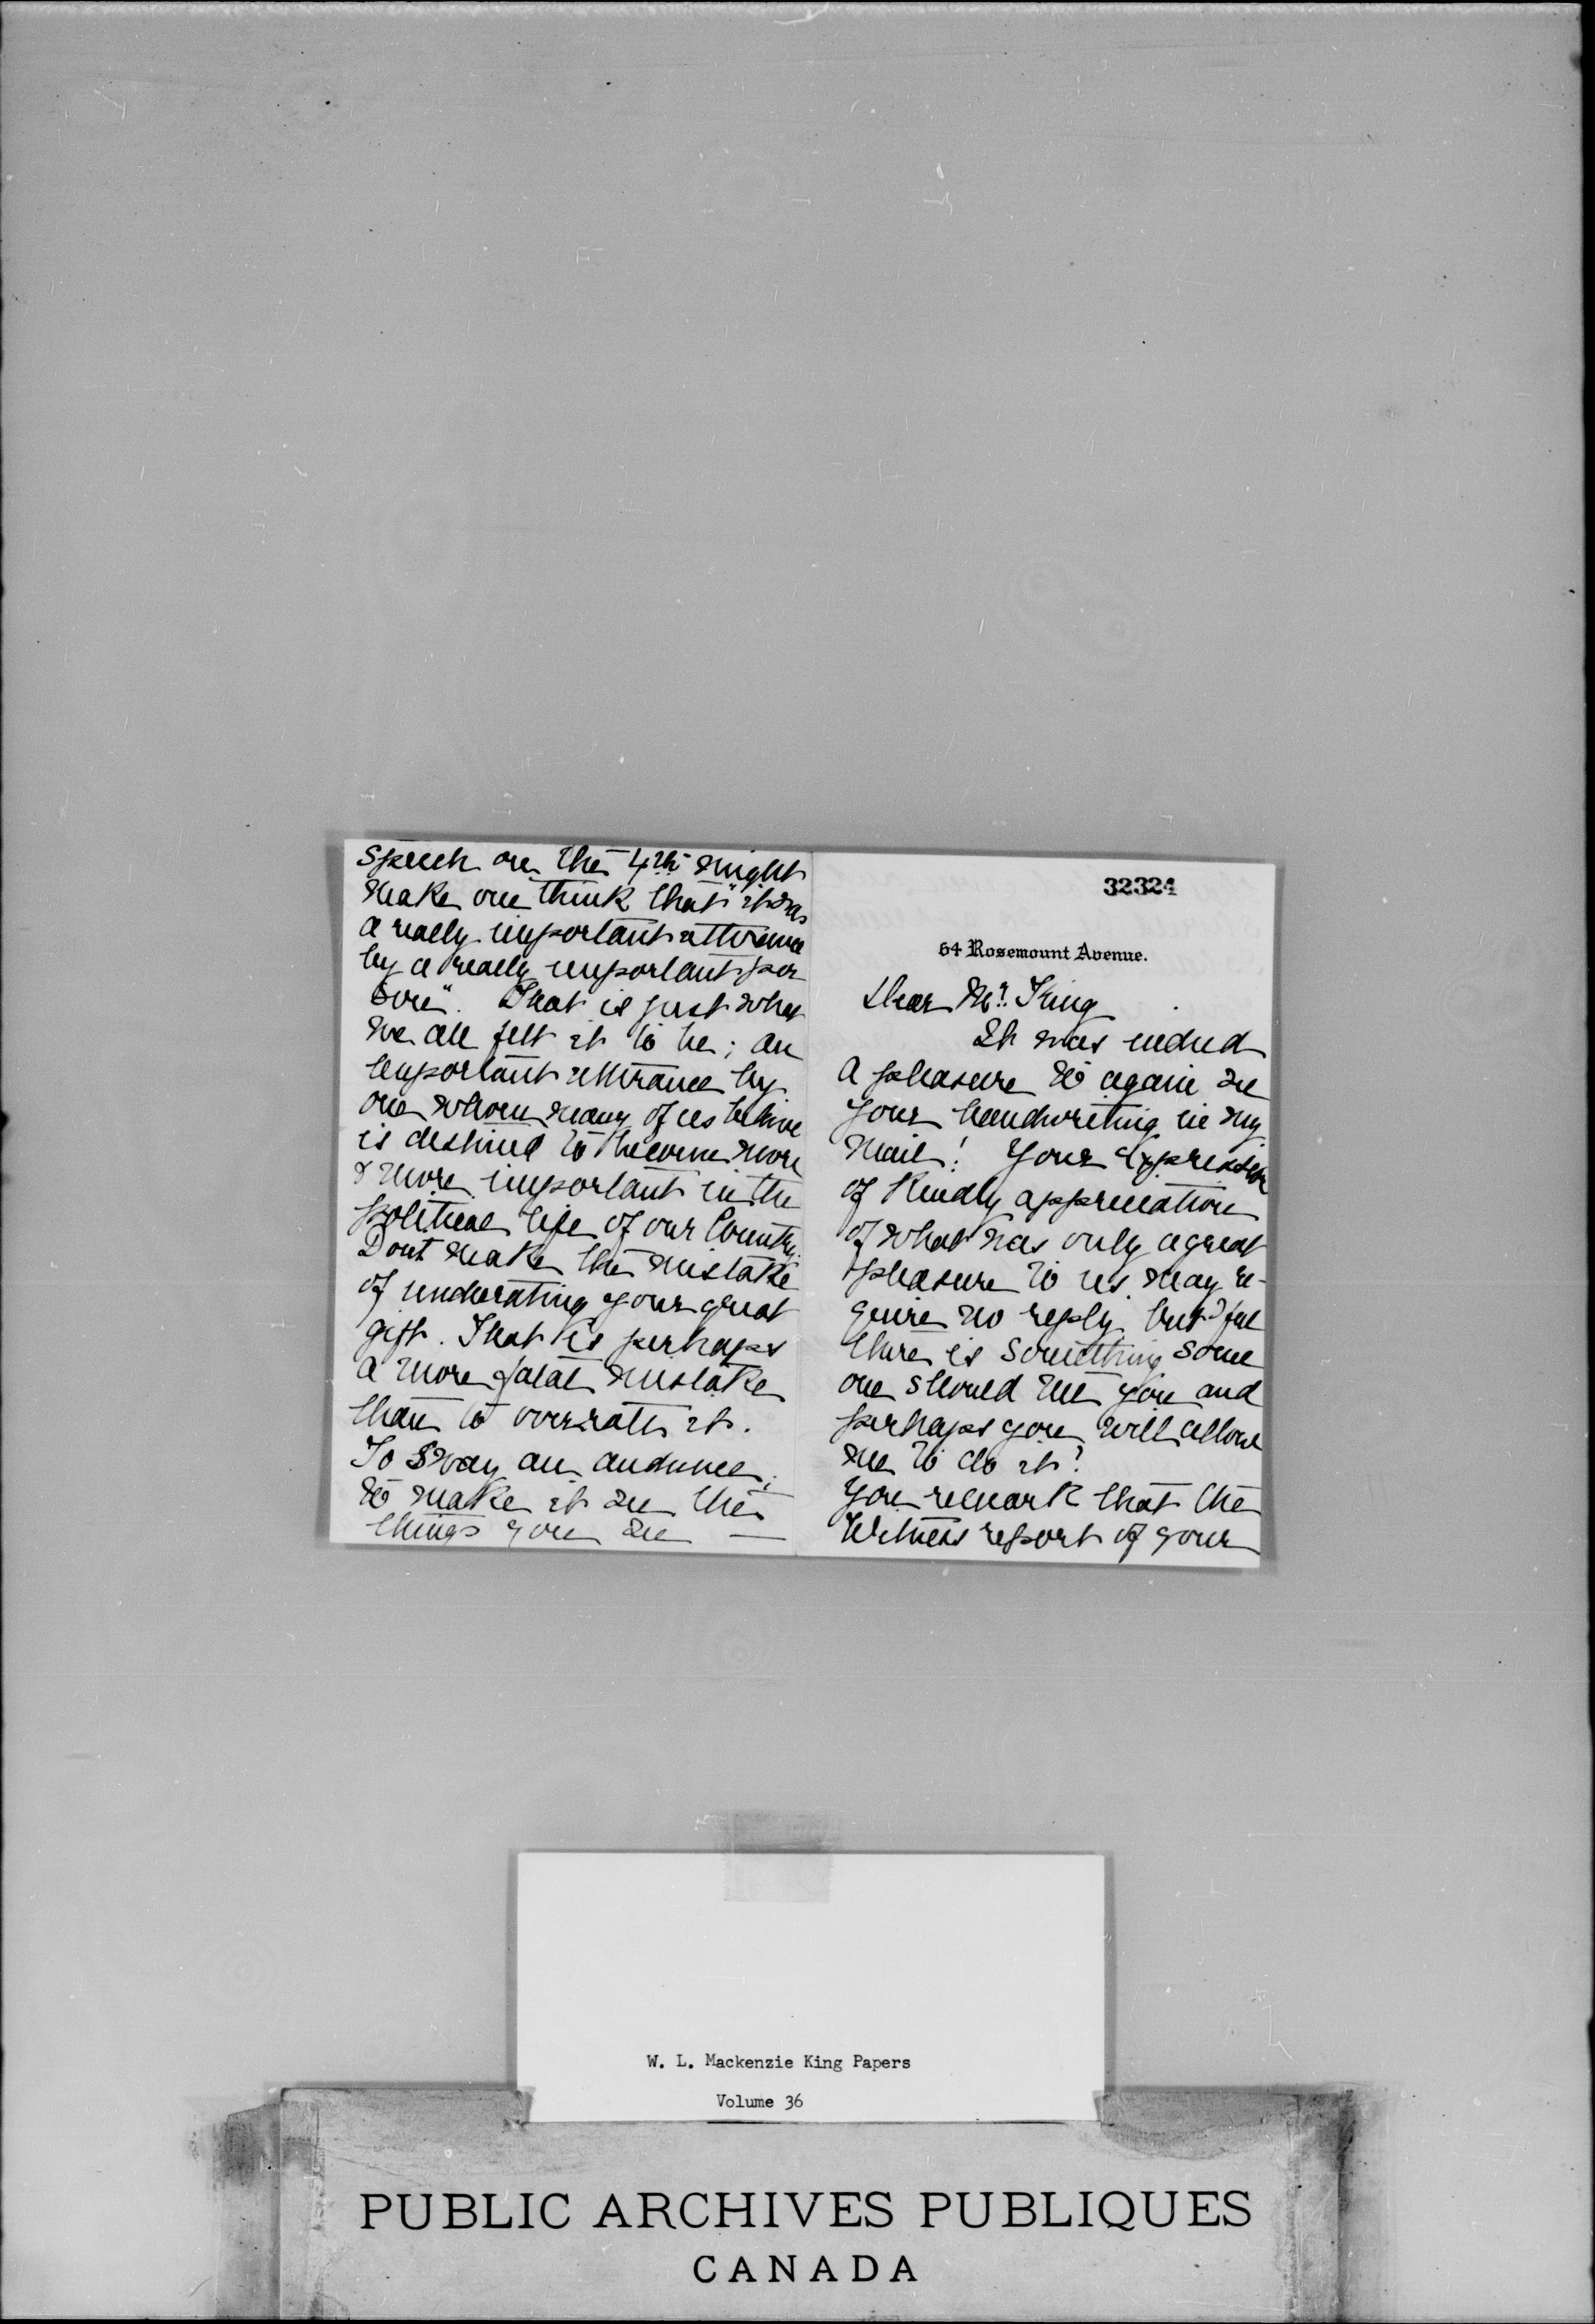 32324
64 Rosemount Avenue.
Dear Mr. King
It was indeed
a pleasure to again see
your handwriting in my
mail! Your expression
of kindly appreciation
of what was only a great
pleasure to us may re-
quire no reply, but I feel
there is something some
one should tell you and
perhaps you will allow
me to do it?
You remark that the
Witness report of your
speech on the 4th might
make one think that "it was
a really important utterance
by a really important per
son". That is just what
we all felt it to be; an
important utterance by
one whom many of us believe
is destined to become more
& more important in the
political life of our Country.
Dont make the mistake
of underrating your great
gift. That is perhaps
a more fatal mistake
than to overrate it.
To sway an audience;
to make it see the
things you see —
W. L. Mackenzie King Papers
Volume 36
PUBLIC ARCHIVES PUBLIQUES
CANADA